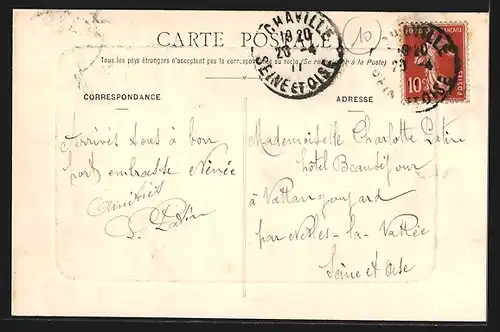 CARTE POSTALE
Tous les pays étrangers n'acceptent pas la correspondance au recto (Se renseigner à la Poste)
CHAVILLE
19 20
20 - 4
11
SEINE ET OISE
10
10
POSTES
CORRESPONDANCE
Arrivés tous à bon
port embrasse Nénée
Amitiés
P. Patin
ADRESSE
Mademoiselle Charlotte Patin
hôtel Beauséjour
à
par Nesles-la-Vallée
Seine et Oise